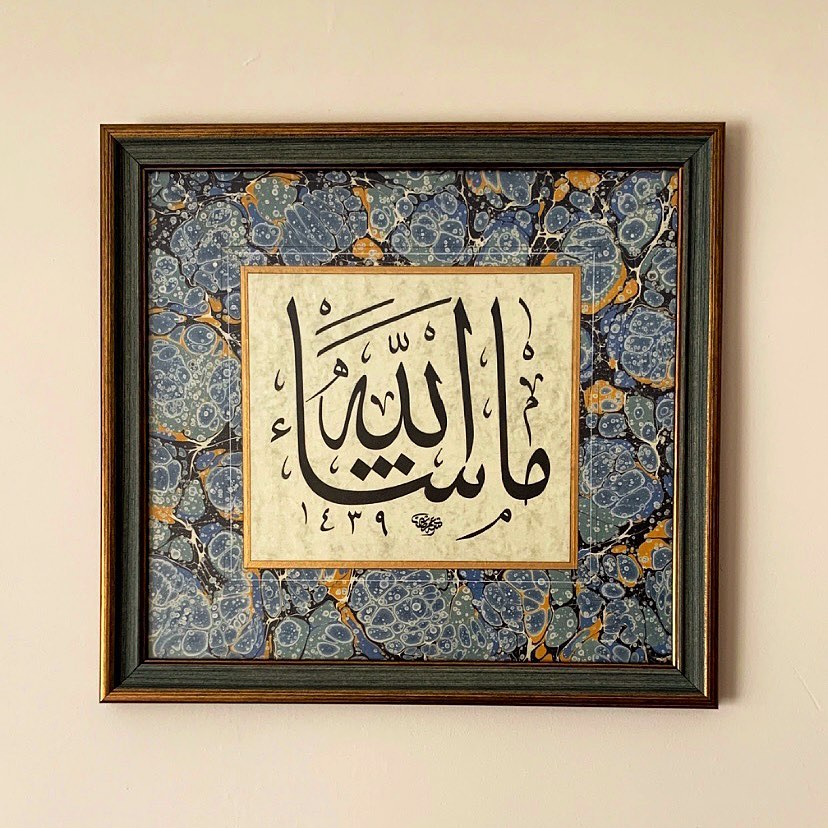 ما شاء الله
١٤٣٩